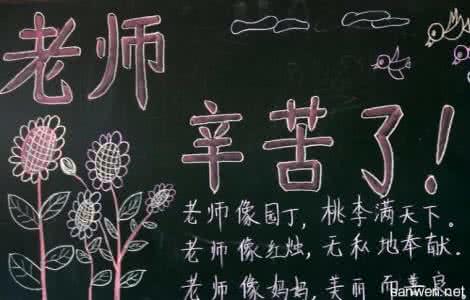 老师
辛苦了!
老师像园丁，桃李满天下。
老师像红烛，无私地奉献.
老师像妈妈，美丽而善良
sanwen.net